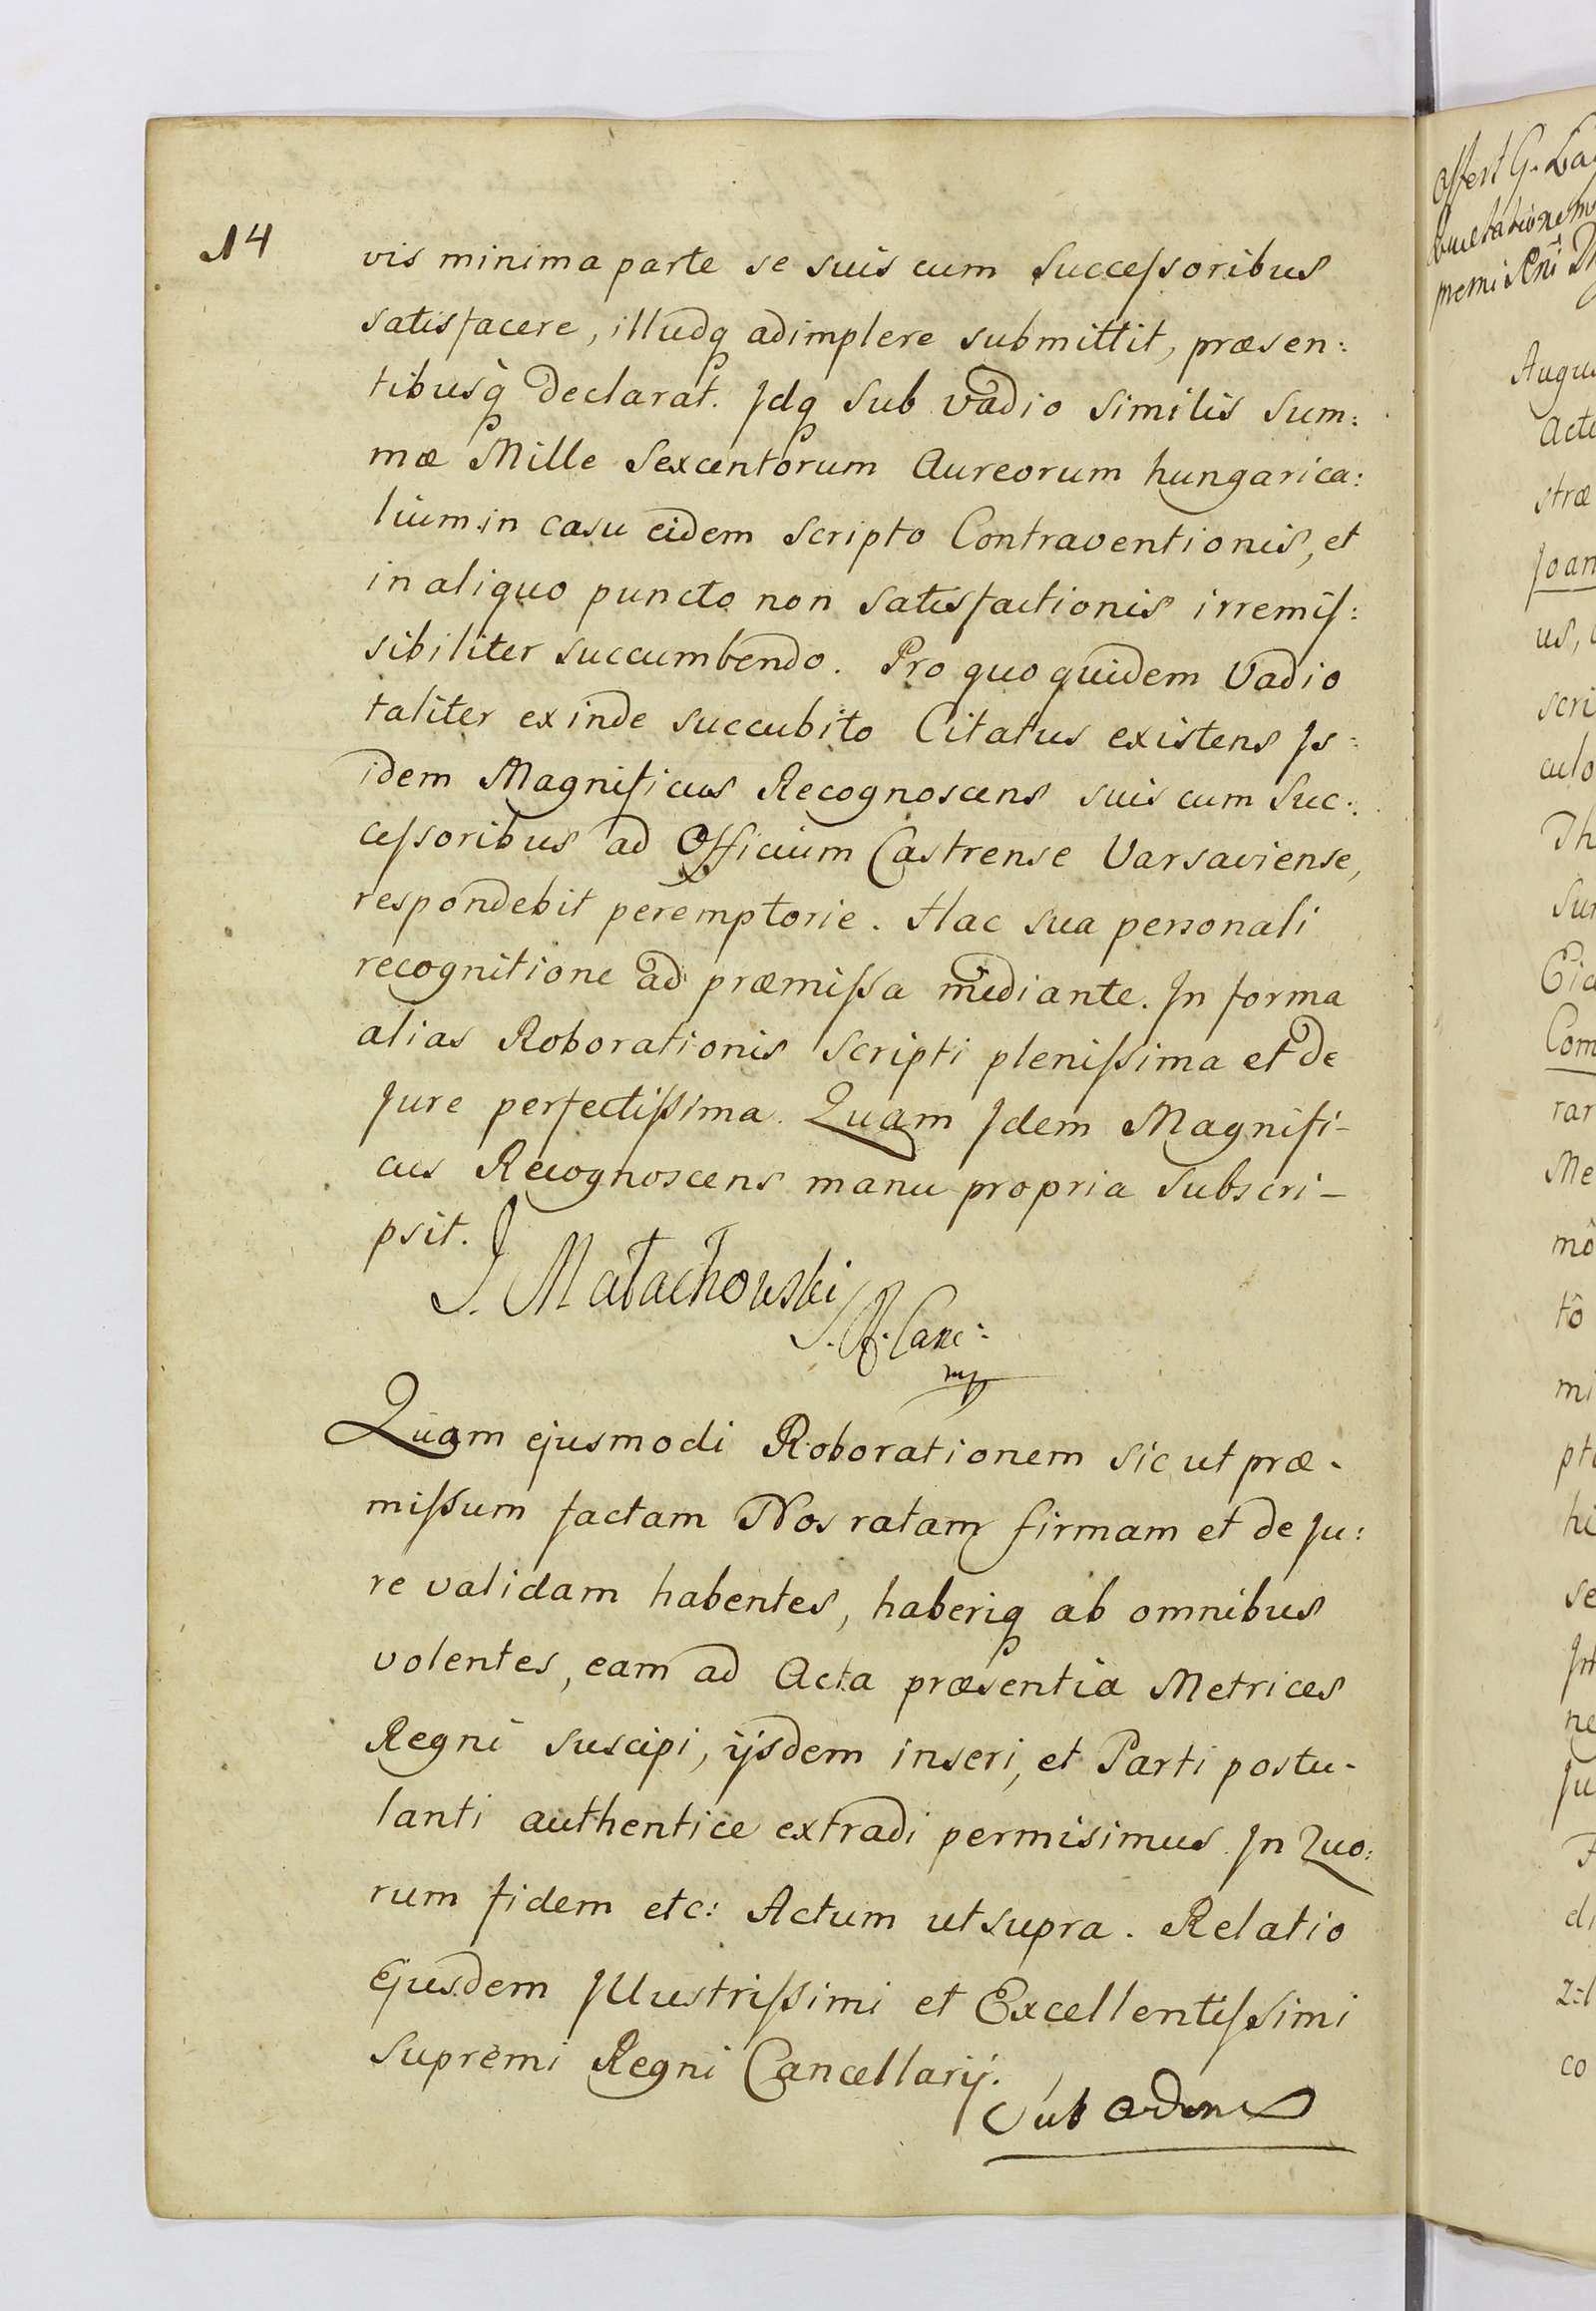 14
vis minima parte se suis cum Successoribus
satisfacere, illudq adimplere submittit, præsen:
tibusq̀ Declarat. Jdq Sub Vadio Similis Sum:
mæ Mille Sexcentorum Aureorum hungarica:
lium in casu eidem Scripto Contraventionis, et
in aliquo puncto non Satisfactionis irremis:
sibiliter succumbendo. Pro quo quidem Vadio
taliter exinde succubito Citatus existens Js:
idem Magnificus Recognoscens suis cum Suc:
cessoribus ad Officium Castrense Varsaviense,
respondebit peremptorie. Hac sua personali
recognitione ad præmissa mediante. Jn forma
alias Roborationis Scripti plenissima et de
Jure perfectissima. Quam Jdem Magnifi-
cus Recognoscens manu propria Subscri-
psit.
J. Małachowski
S. R. Canc:
mp
Quam ejusmodi Roborationem sic ut præ-
missum factam Nos ratam firmam et de Ju:
re validam habentes, haberiq ab omnibus
volentes, eam ad Acta præsentia Metrices
Regni suscipi, ijsdem inseri, et Parti postu-
lanti authentice extradi permisimus. Jn Quo:
rum fidem etc: Actum ut supra. Relatio
Ejusdem Jllustrissimi et Excellentissimi
Supremi Regni Cancellarij.
Offert G.
premi
Augus
Acti
stræ
Joan
us,
scri
culo
Th
Sum
Com
rar
Me
mô
tô
mi
hi
se
ne
Ju
di
co